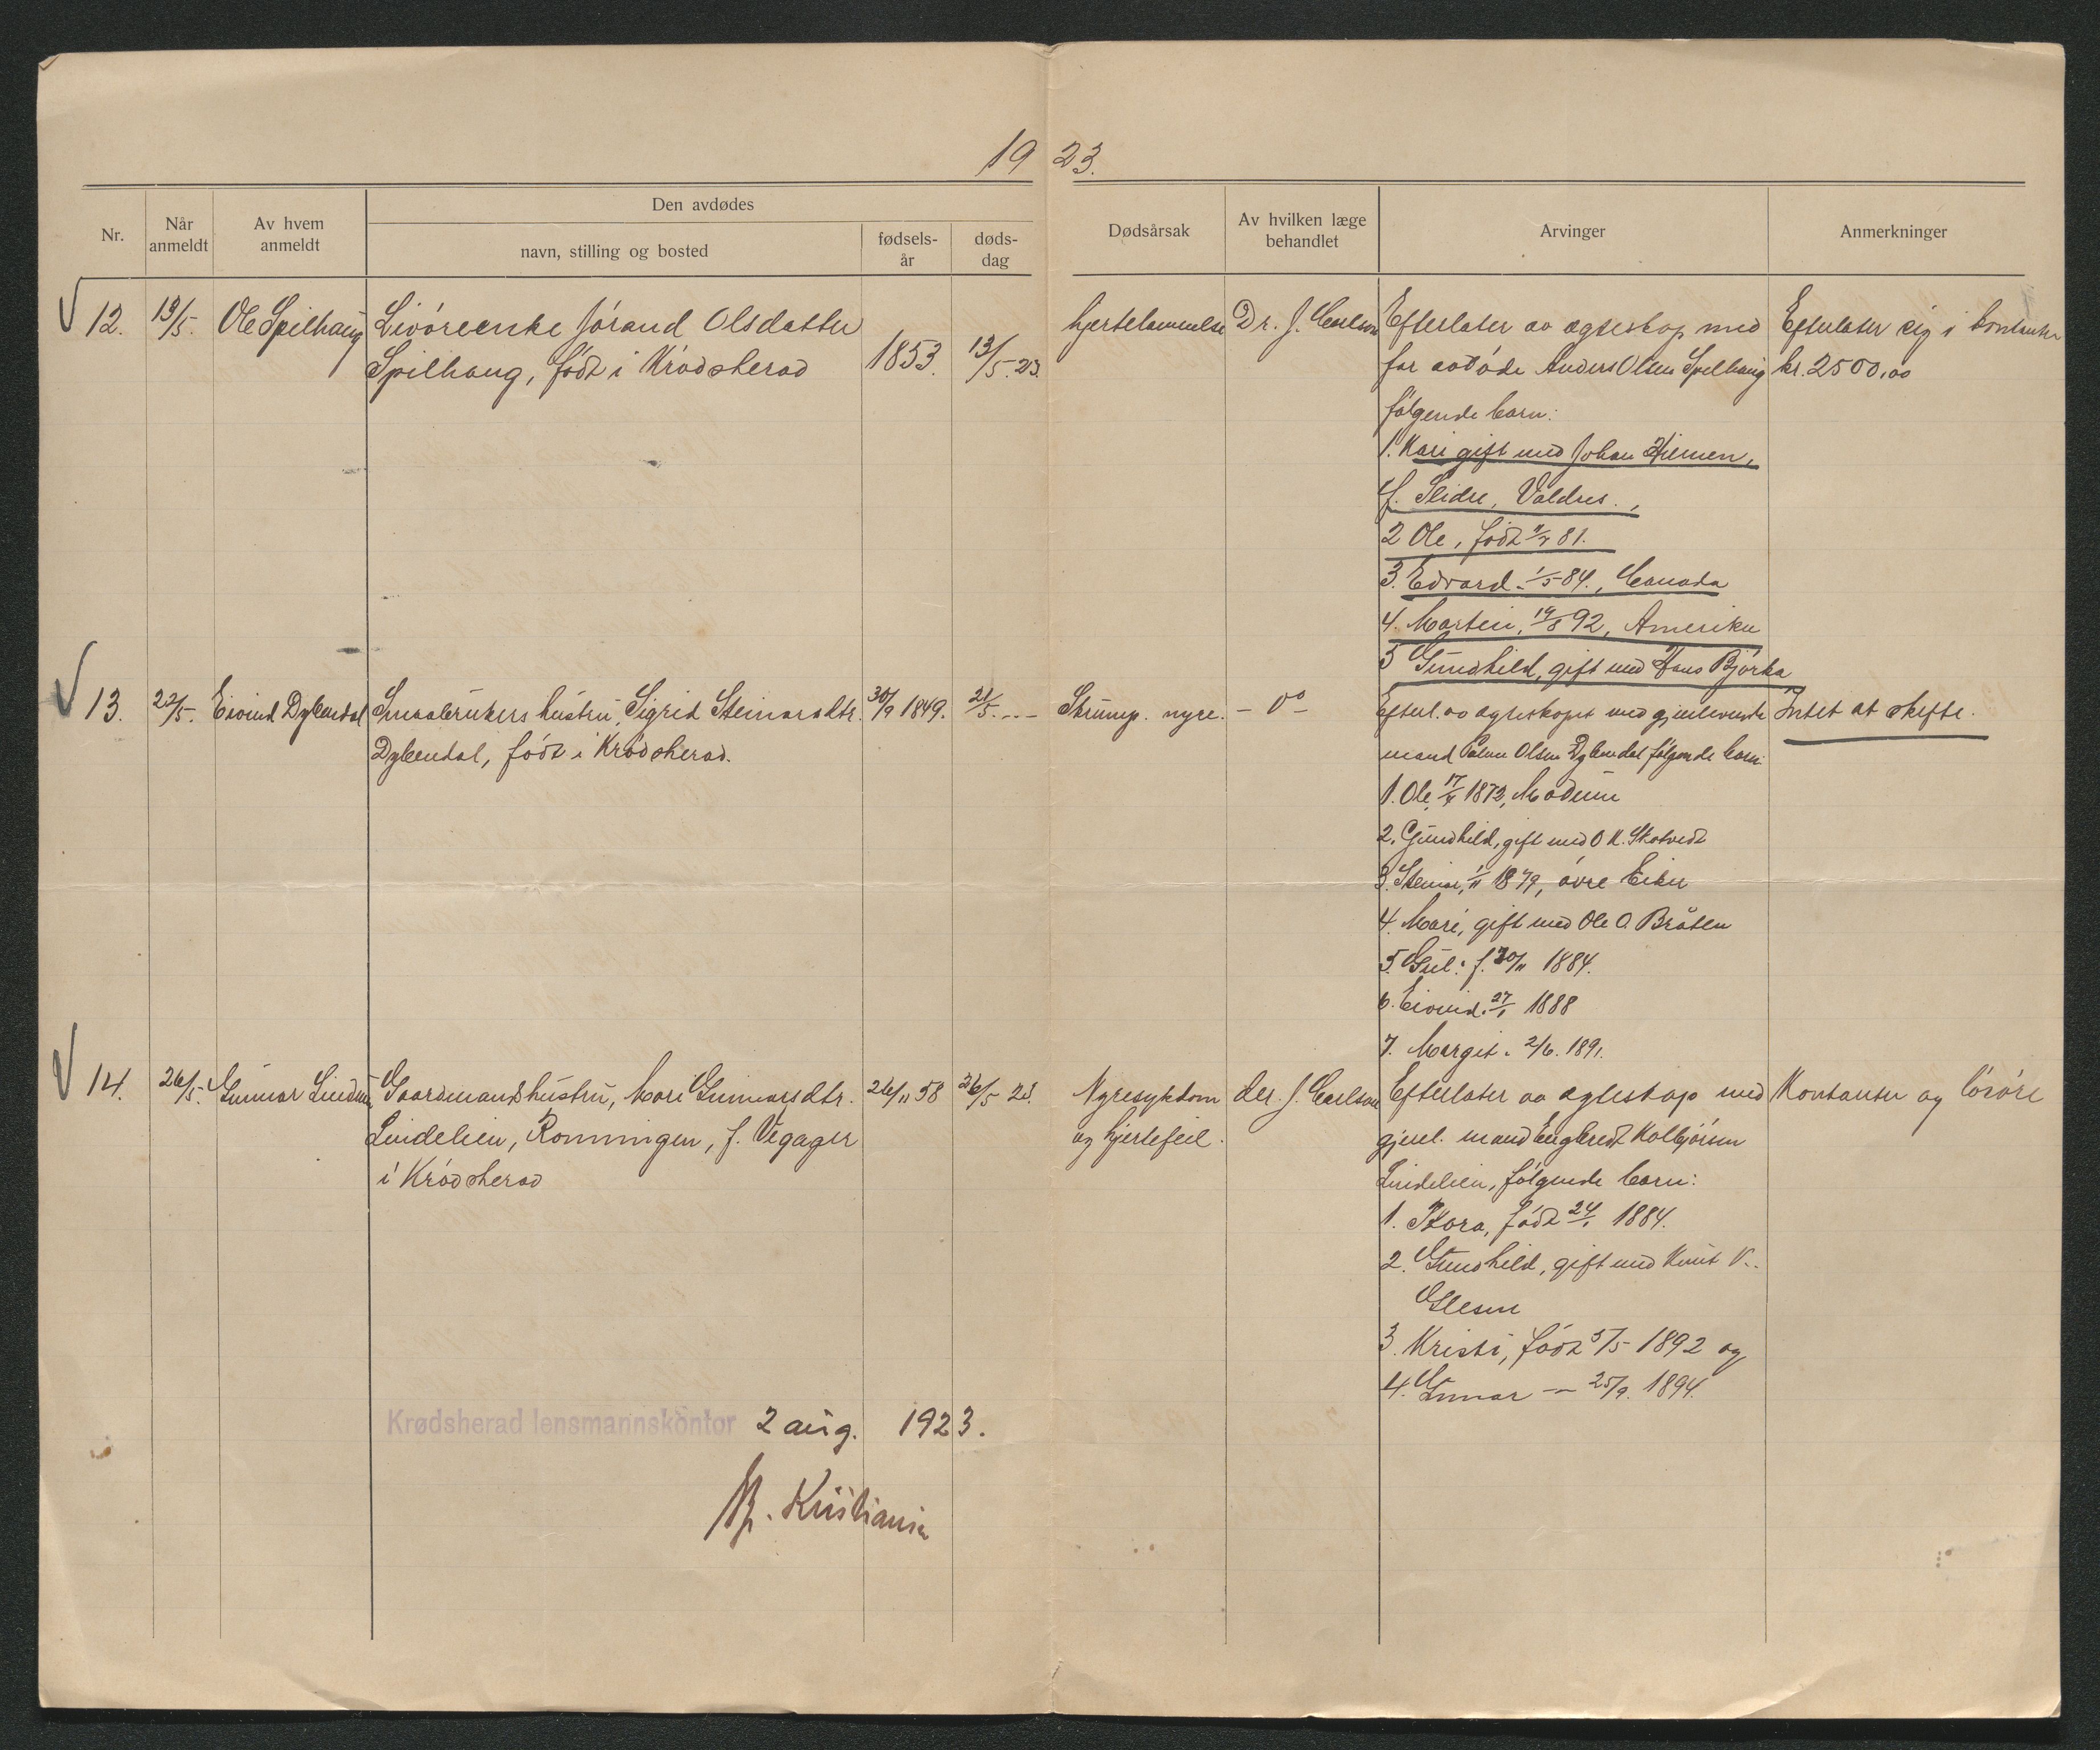 1923.
Nr.
Når anmeldt
Av hvem anmeldt
Den avdødes
navn, stilling og bosted
fødsels-år
døds-dag
Dødsårsak
Av hvilken læge behandlet
Arvinger
Anmerkninger
12. 13/5. Ole Spilhaug
Livöreenke Jörand Olsdatter
Spilhaug, födt i Krödsherad
1853. 13/5. 23.
hjertelammelse
Dr. J. Carlson
Efterlater av egteskap med
for avdöde Anders Olsen Spilhaug
følgende barn:
1. Kari gift med Johan
f. Slidre, Valdres.
2 Ole, födt 81.
3. Edvard - 1/5 84., Canada
4. Martin, 19/8 92, Amerika
5 Gunhild, gift med Hans Björka
Efterlater sig i kontanter
kr. 2500,00
13. 22/5. Eivind Dybendal
Smaabrukers hustru, Sigrid Steinarsdtr.
Dybendal, födt i Krödsherad.
30/9 1849. 21/5. .. -
Skrump. nyre.
- Do -
Efterl. av egteskapet med gjenlevende
mand Olsen Dybendal følgende barn
1. Ole 1873, Modum
2. Gundhild, gift med O K. Skotvedt
3. Steinar, 1/11 1879, övre Eiker
4. Mari, gift med Ole O. Bråten
5. Gul: f. 30/11 1884.
6. Eivind. 27/1 1888
7. Margit. 2/6. 1891.
Intet at skifte.
14. 26/5. Gunnar
Gaardmands hustru, Mari Gunnarsdtr.
Lindelien, Ronningen, f. Vegager
i Krödsherad
26/11 58 26/5 23.
Nyresykdom
og hjertefeil.
der. J. Carlson
Efterlater av egteskap med
gjenl. mand Engbredt Kolbjörsen
Lindelien, følgende barn:
1. Thora, födt 24/1 1884.
2. Gundhild, gift med Knut V..
Glesne
3. Kristi, födt 3/5 1892 og
4. Gunnar — 25/9. 1894.
Kontanter og lösöre
Krødsherad lensmannskontor 2 aug. 1923.
Kristiansen